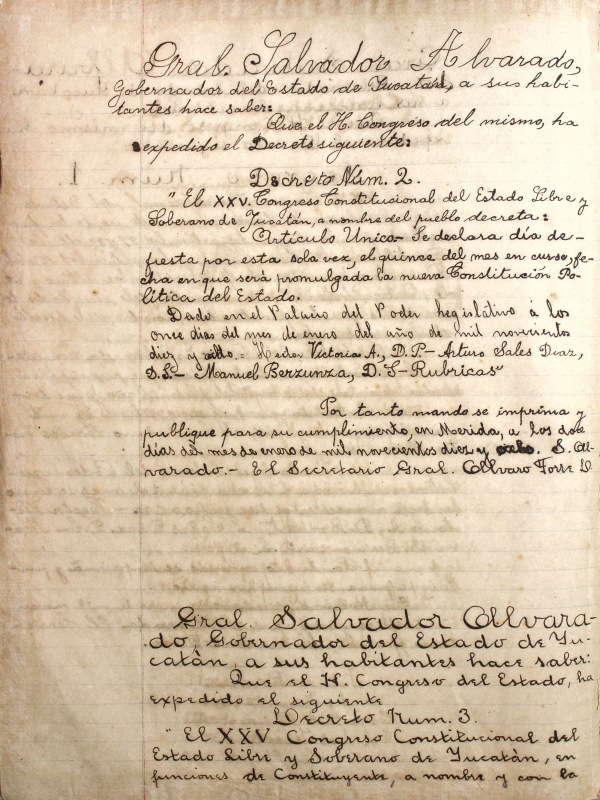 Gral. Salvador Alvarado,
Gobernador del Estado de Yucatán, a sus habi-
tantes hace saber:
Que el H. Congreso del mismo, ha
expedido el Decreto siguiente:
Decreto Núm. 2.
"El XXV. Congreso Constitucional del Estado Libre y
Soberano de Yucatán, a nombre del pueblo decreta:
Artículo Unico.- Se declara día de-
fiesta por esta sola vez, el quince del mes en curso, fe-
cha en que será promulgada la nueva Constitución Po-
lítica del Estado.
Dado en el Palacio del Poder Legislativo á los
once dias del mes de enero del año de mil novecientos
diez y ocho.= Hector Victoria A., D.P.- Arturo Sales Diaz,
D.S.- Manuel Berzunza, D.S-Rubricas"
Por tanto mando se imprima y
publique para su cumplimiento, en Merida, a los doce
días del mes de enero de mil novecientos diez y ocho. S. Al-
varado.- El Secretario Gral. Alvaro Torre D
Gral. Salvador Alvara-
do, Gobernador del Estado de Yu-
catàn, a sus habitantes hace saber:
Que el H. Congreso del Estado, ha
expedido el siguiente
Decreto Num. 3.
"El XXV Congreso Constitucional del
Estado Libre y Soberano de Yucatàn, en
funciones de Constituyente, a nombre y con la